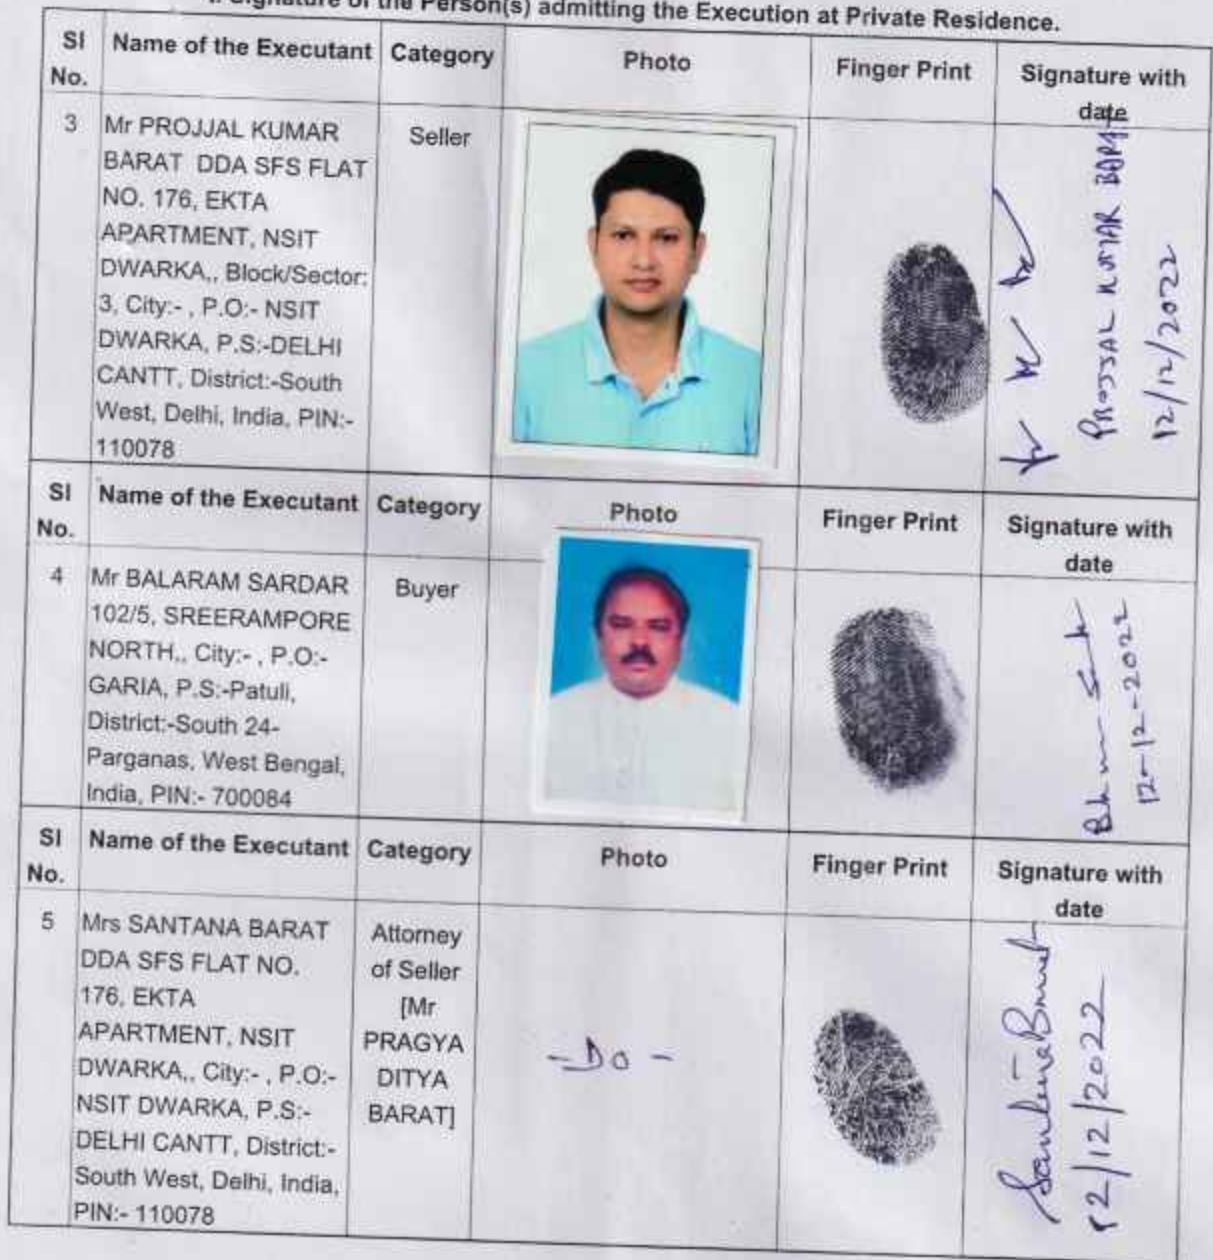 Signature of the Person(s) admitting the Execution at Private Residence.
Sl No. Name of the Executant Category Photo Finger Print Signature with date
3 Mr PROJJAL KUMAR Seller
BARAT DDA SFS FLAT
NO. 176, EKTA
APARTMENT, NSIT
DWARKA,, Block/Sector:
3, City:- , P.O:- NSIT
DWARKA, P.S:-DELHI
CANTT, District:-South
West, Delhi, India, PIN:-
110078
PROJJAL KUMAR BARAT
12/12/2022
Sl No. Name of the Executant Category Photo Finger Print Signature with date
4 Mr BALARAM SARDAR Buyer
102/5, SREERAMPORE
NORTH,, City:- , P.O:-
GARIA, P.S:-Patuli,
District:-South 24-
Parganas, West Bengal,
India, PIN:- 700084
12-12-2022
Sl No. Name of the Executant Category Photo Finger Print Signature with date
5 Mrs SANTANA BARAT
DDA SFS FLAT NO.
176, EKTA
APARTMENT, NSIT
DWARKA,, City:- , P.O:-
NSIT DWARKA, P.S:-
DELHI CANTT, District:-
South West, Delhi, India,
PIN:- 110078
Attorney
of Seller
[Mr
PRAGYA
DITYA
BARAT]
- Do -
Santana Barat
12/12/2022